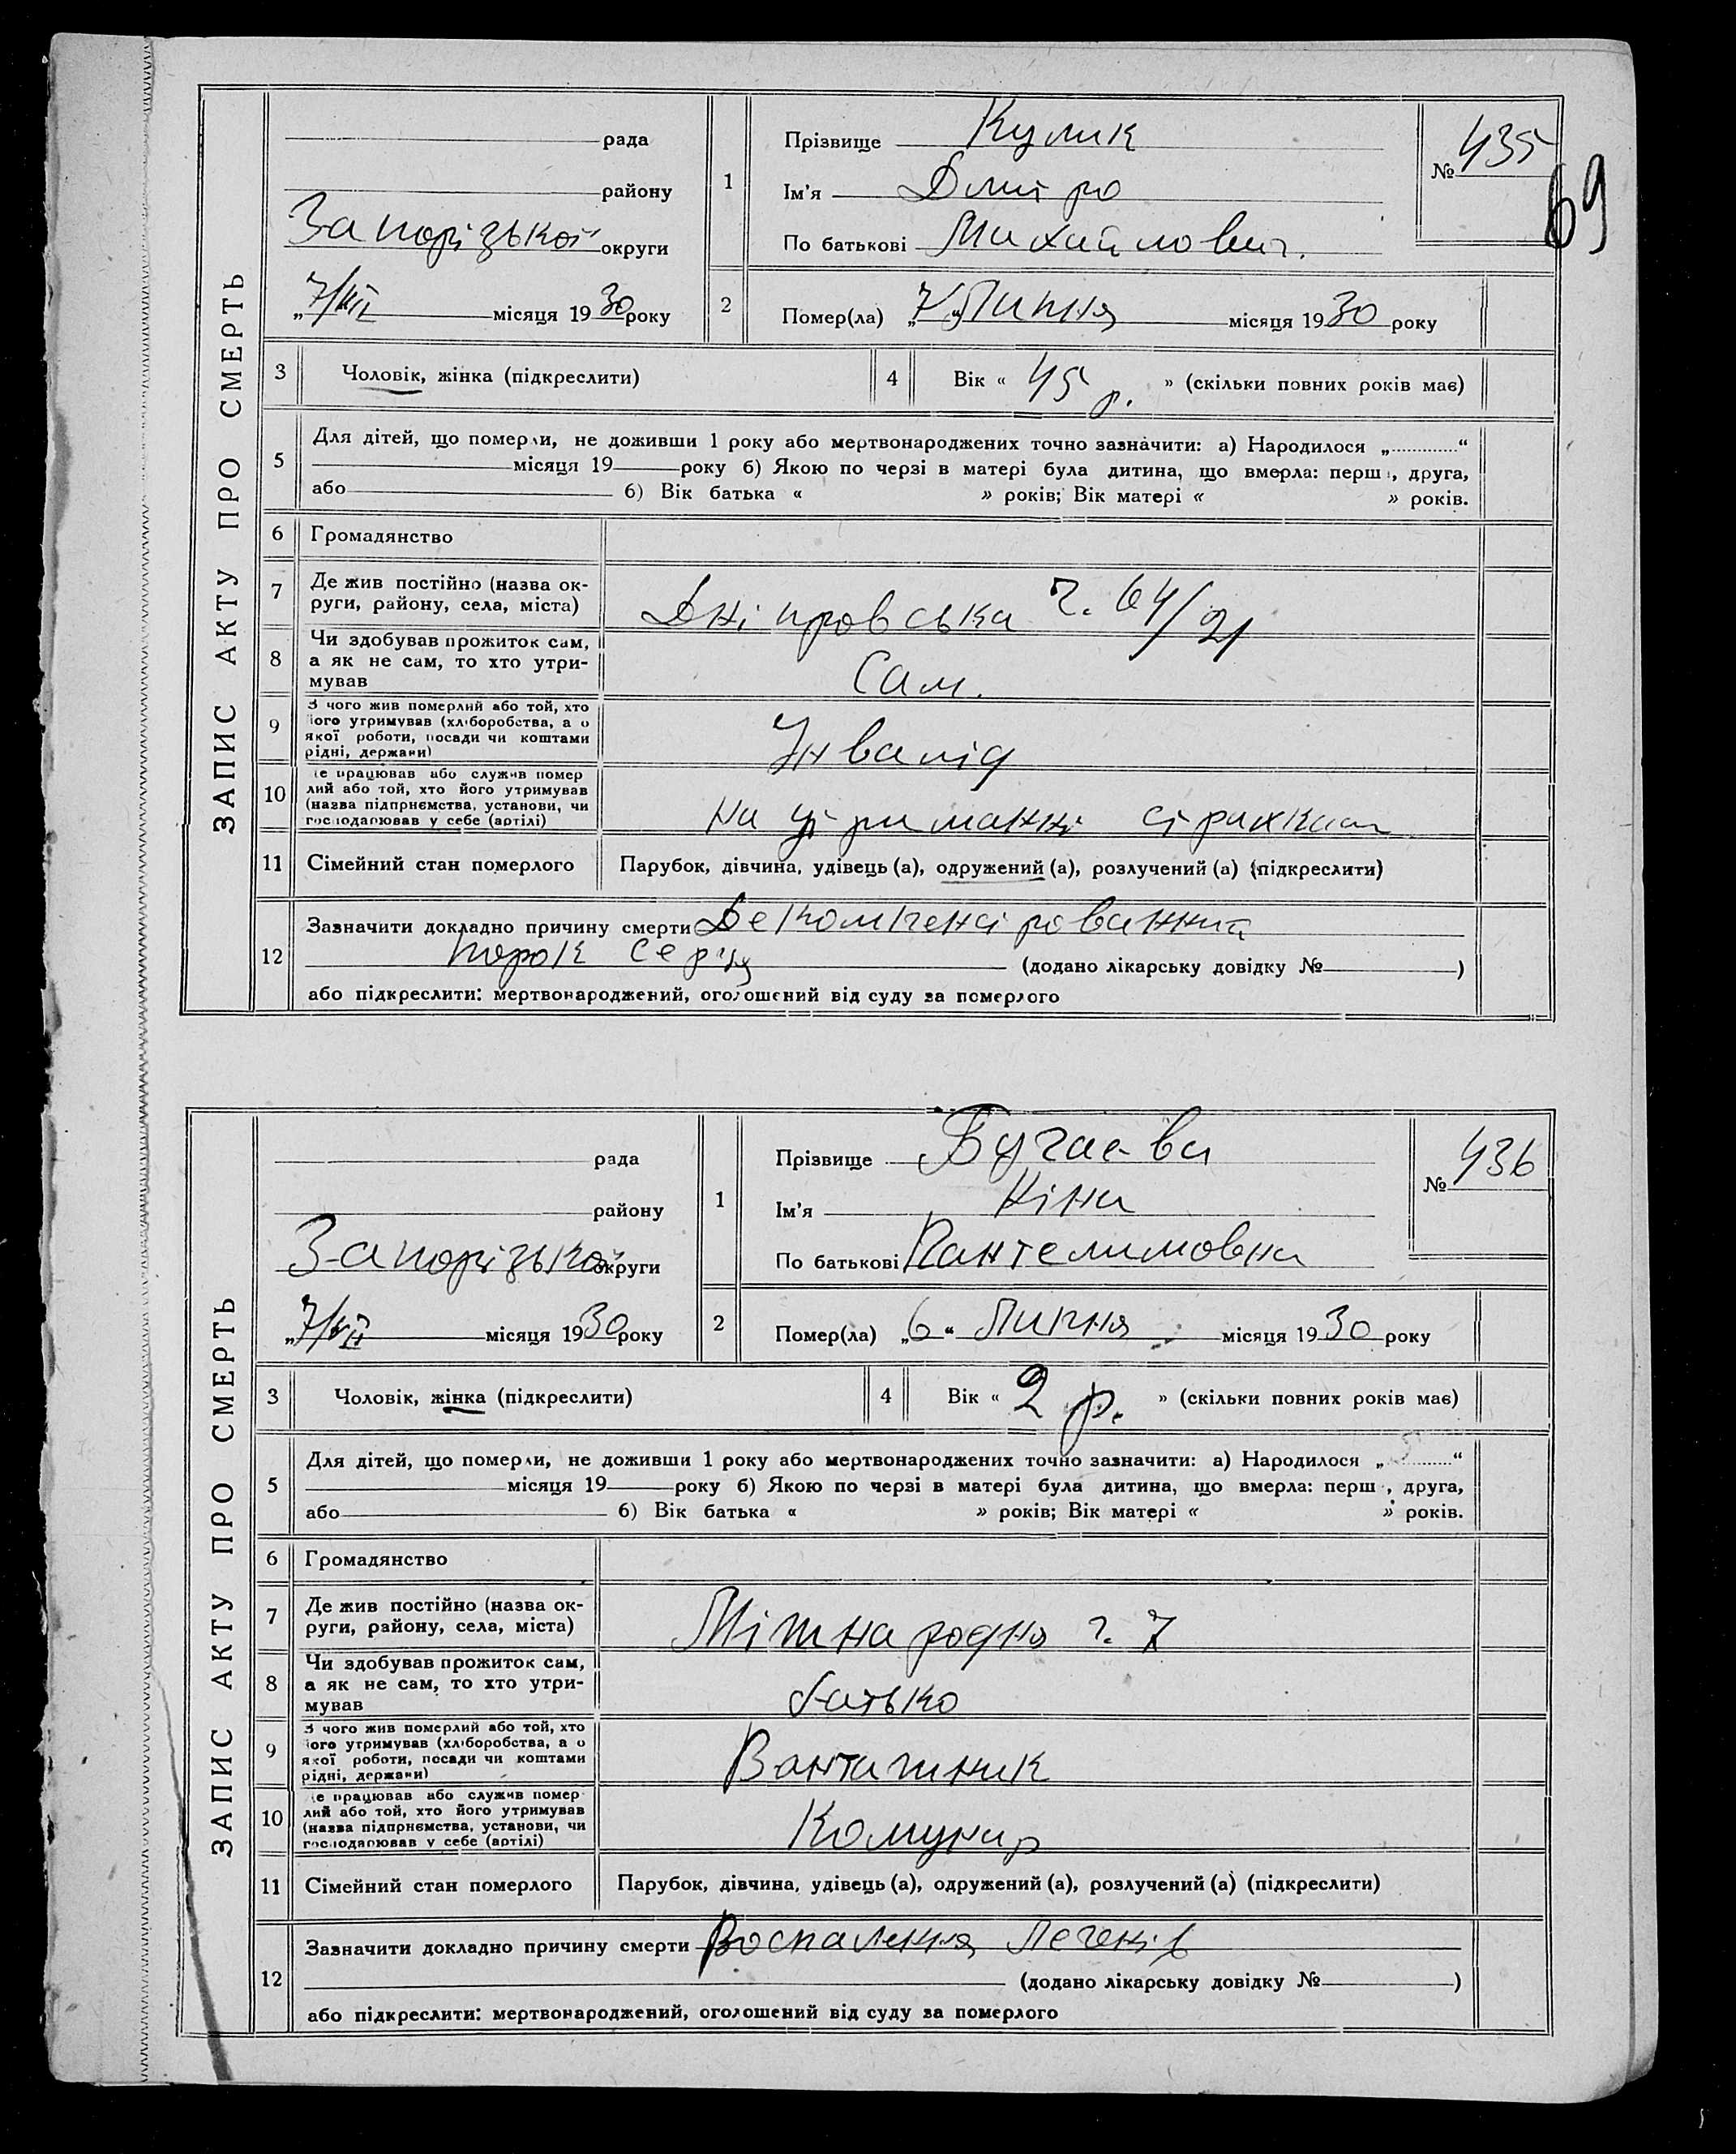 69
ЗАПИС АКТУ ПРО СМЕРТЬ
рада
району
Запорізької округи
„7/VII місяця 1930 року
1
Прізвище Кулик
Ім'я Дмитро
По батькові Михайлович.
№ 435
2
Помер(ла) „7“ Липня місяця 1930 року
3
Чоловік, жінка (підкреслити)
4
Вік « 45 р. » (скільки повних років має)
5
Для дітей, що померли, не доживши 1 року або мертвонароджених точно зазначити: а) Народилося „............“
місяця 19 року б) Якою по черзі в матері була дитина, що вмерла: перш , друга,
або б) Вік батька « » років; Вік матері « » років.
6
Громадянство
7
Де жив постійно (назва ок-
руги, району, села, міста)
Дніпровська ч. 64/21
8
Чи здобував прожиток сам,
а як не сам, то хто утри-
мував
Сам.
9
З чого жив померлий або той, хто
його утримував (хліборобства, а о
якої роботи, посади чи коштами
рідні, держави)
Інвалід
10
е працював або служив помер
лий або той, хто його утримував
(назва підприємства, установи, чи
господарював у себе (артілі)
на утриманні страхкаси
11
Сімейний стан померлого
Парубок, дівчина, удівець (а), одружений (а), розлучений (а) (підкреслити)
12
Зазначити докладно причину смерти Декомпенсірованний
порок серця (додано лікарську довідку № )
або підкреслити: мертвонароджений, оголошений від суду за померлого
ЗАПИС АКТУ ПРО СМЕРТЬ
рада
району
Запорізької округи
„7/VII місяця 1930 року
1
Прізвище Бугаева
Ім'я Ніна
По батькові Пантелимовна
№ 436
2
Помер(ла) „6“ Липня місяця 1930 року
3
Чоловік, жінка (підкреслити)
4
Вік « 2 р. » (скільки повних років має)
5
Для дітей, що померли, не доживши 1 року або мертвонароджених точно зазначити: а) Народилося „............“
місяця 19 року б) Якою по черзі в матері була дитина, що вмерла: перш , друга,
або б) Вік батька « » років; Вік матері « » років.
6
Громадянство
7
Де жив постійно (назва ок-
руги, району, села, міста)
Міжнародня ч. 7
8
Чи здобував прожиток сам,
а як не сам, то хто утри-
мував
батько
9
З чого жив померлий або той, хто
його утримував (хліборобства, а о
якої роботи, посади чи коштами
рідні, держави)
Вантажник
10
е працював або служив помер
лий або той, хто його утримував
(назва підприємства, установи, чи
господарював у себе (артілі)
Комунар
11
Сімейний стан померлого
Парубок, дівчина, удівець (а), одружений (а), розлучений (а) (підкреслити)
12
Зазначити докладно причину смерти Воспалення Легенів
(додано лікарську довідку № )
або підкреслити: мертвонароджений, оголошений від суду за померлого